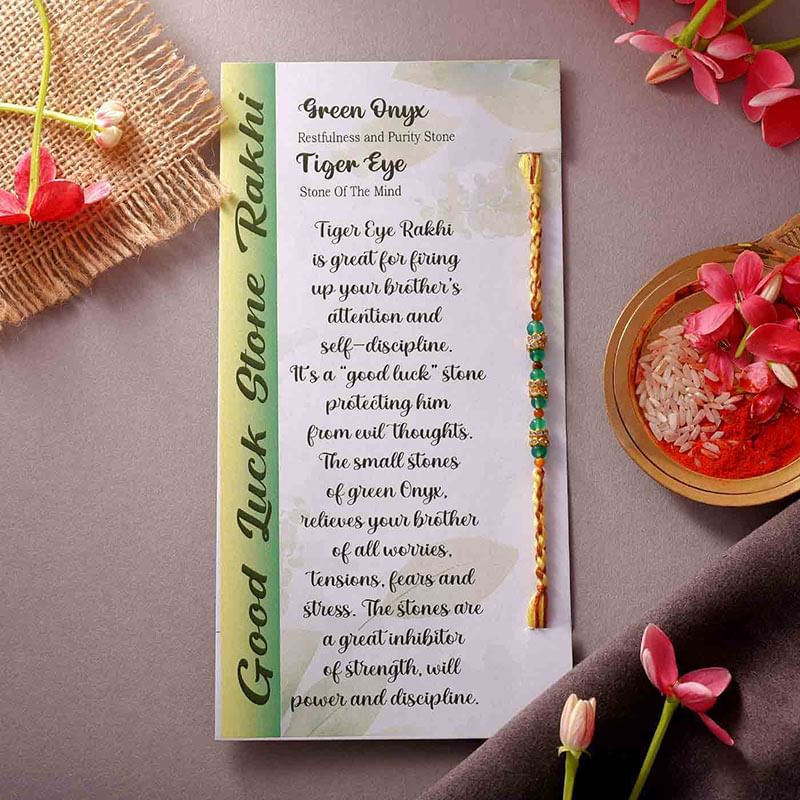 Good Luck Stone Rakhi
Green Onyx
Restfulness and Purity Stone
Tiger Eye
Stone Of The Mind
Tiger Eye Rakhi
is great for firing
up your brother's
attention and
self-discipline.
It's a "good luck" stone
protecting him
from evil thoughts.
The small stones
of green Onyx,
relieves your brother
of all worries,
tensions, fears and
stress. The stones are
a great inhibitor
of strength, will
power and discipline.